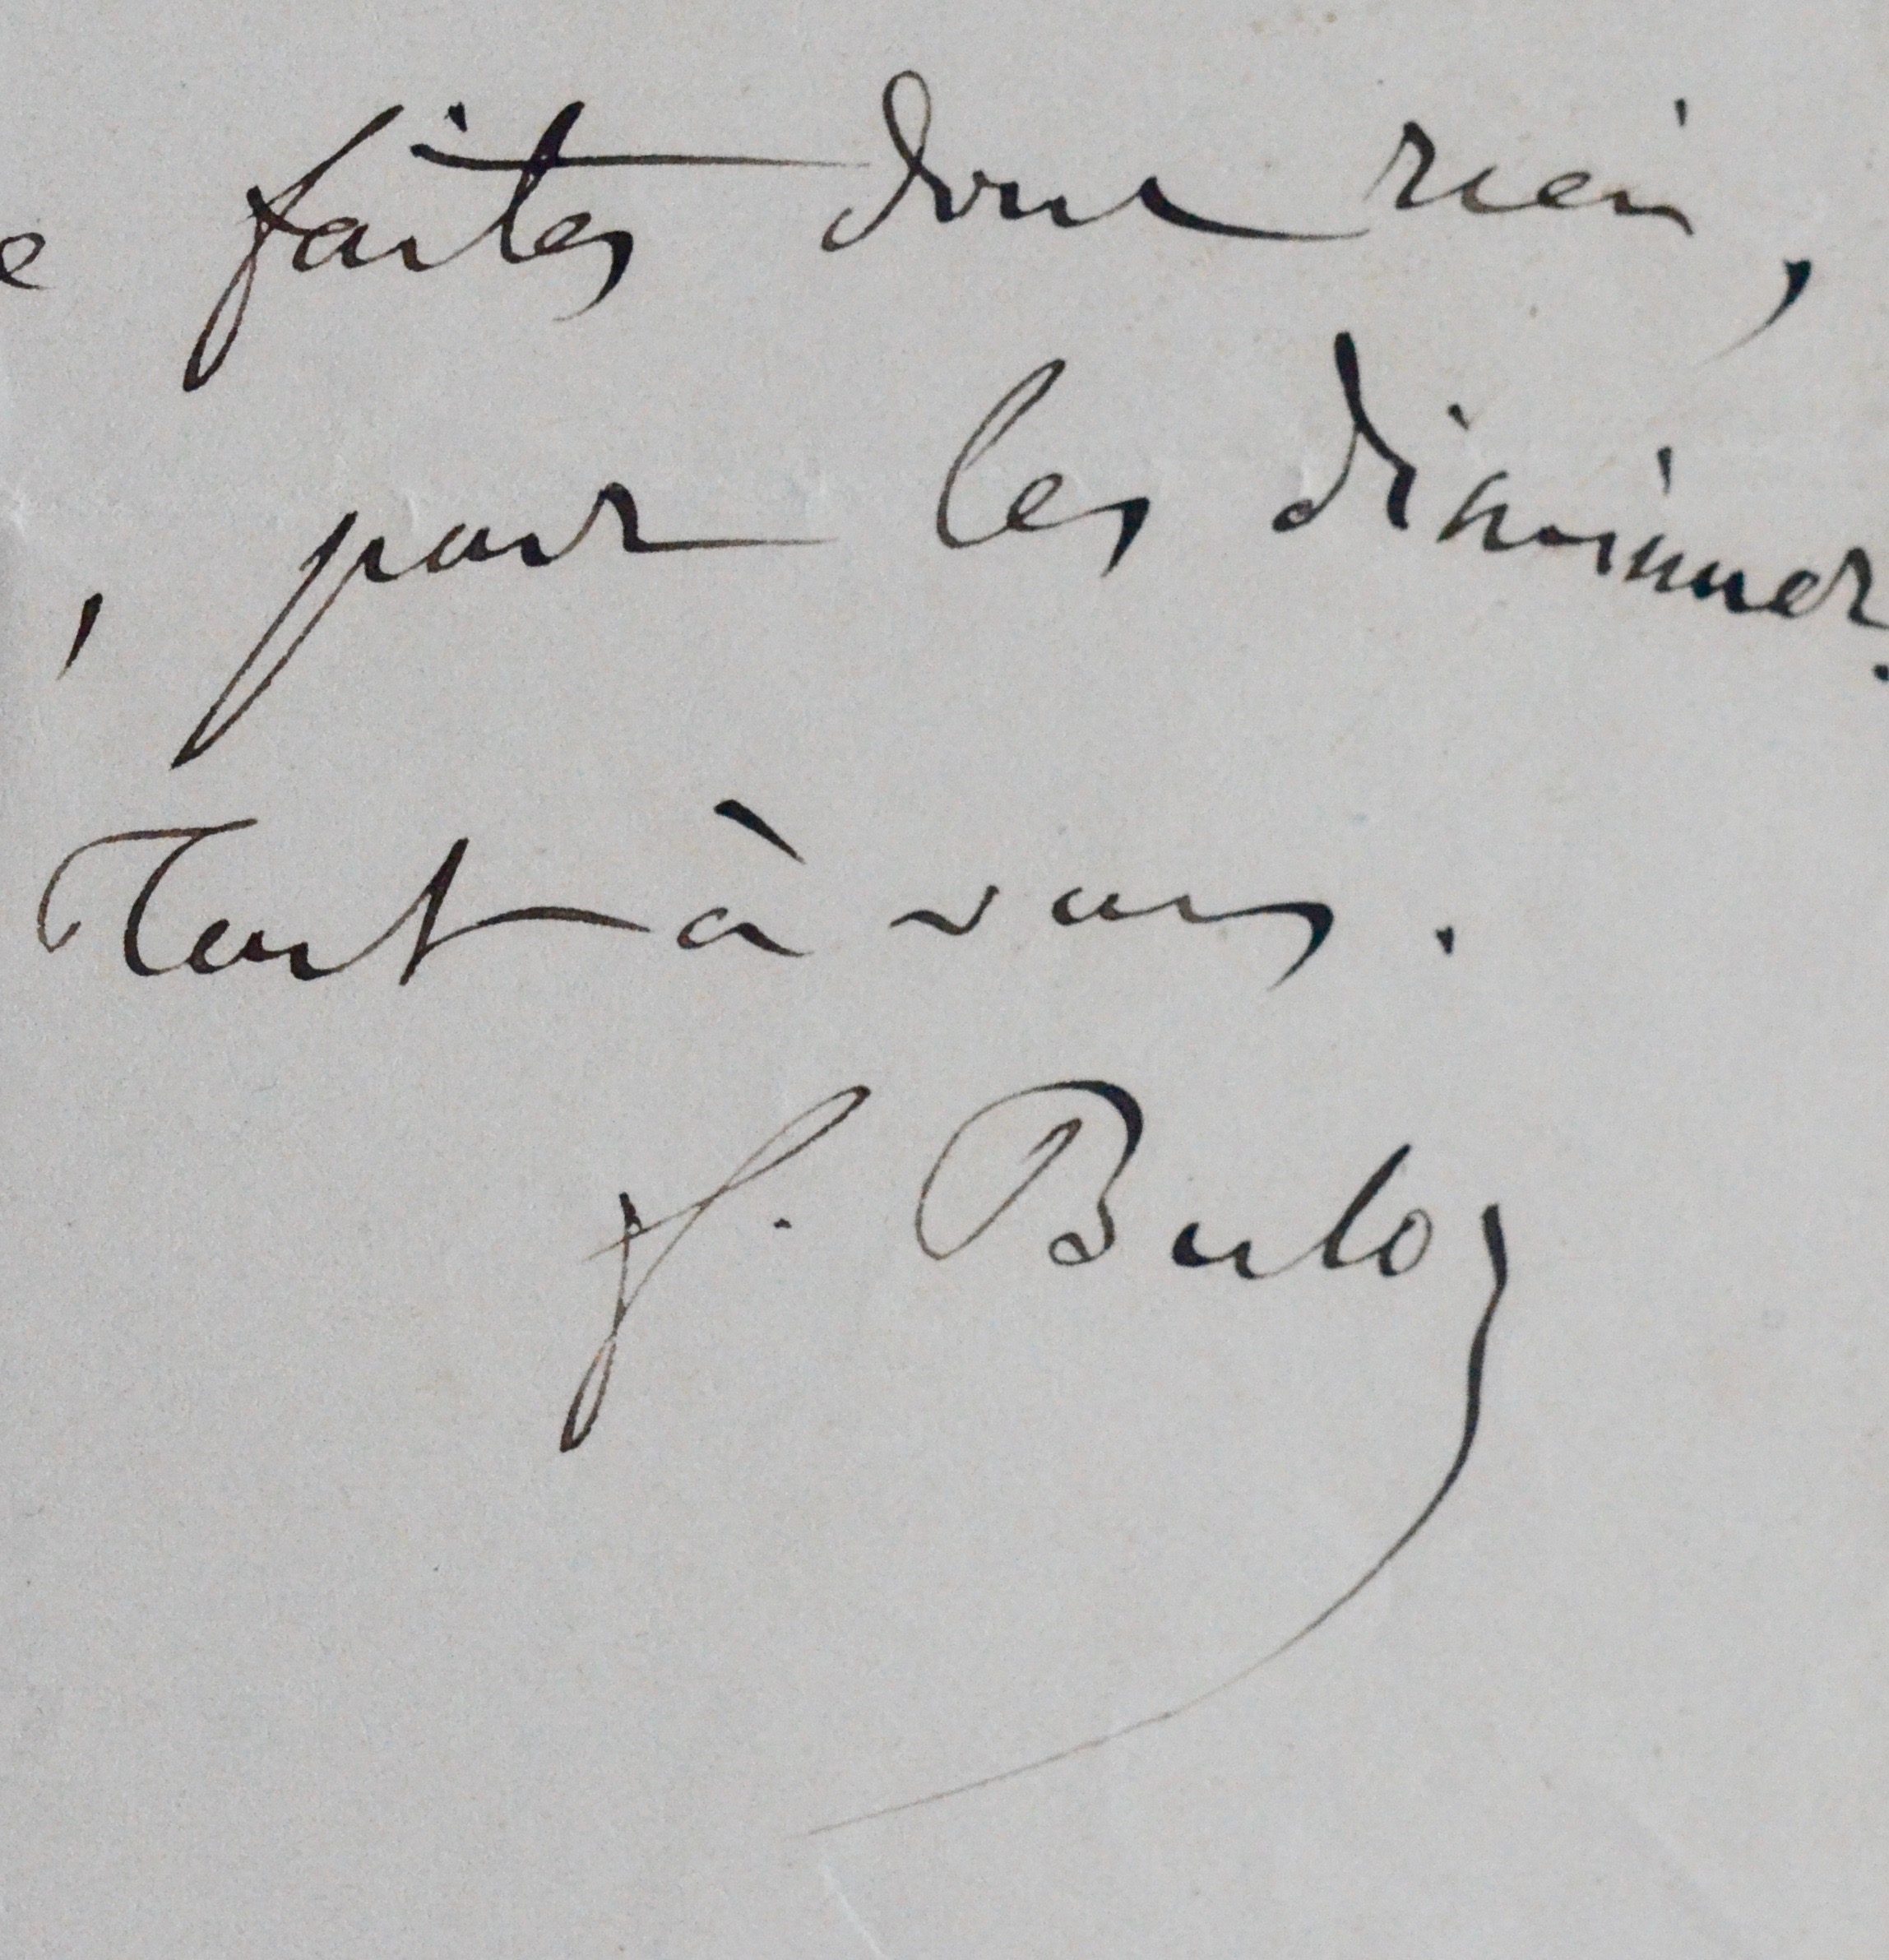 e faites donc rien,
, pour les diminuer.
Tout à vous.
f. Buloz